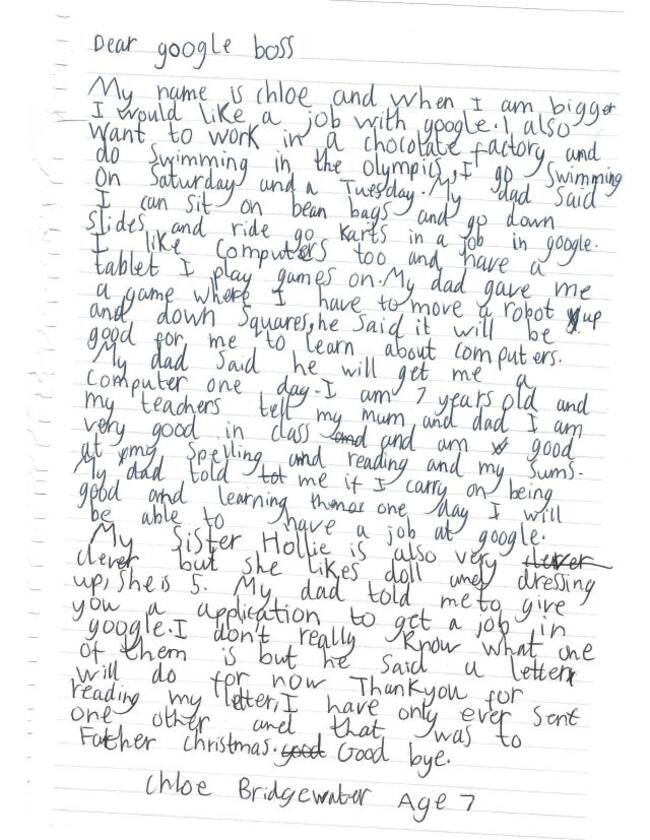 Dear google boss
My name is chloe and when I am bigger
I would like a job with google. I also
want to work in a chocolate factory and
do swimming in the olympics, I go swimming
on Saturday and a Tuesday. My dad said
I can sit on bean bags and go down
slides and ride go karts in a job in google.
I like computers too and have a
tablet I play games on. My dad gave me
a game where I have to move a robot up
and down squares, he said it will be
good for me to learn about computers.
My dad said he will get me a
computer one day. I am 7 years old and
my teachers tell my mum and dad I am
very good in class and and am good
at my spelling and reading and my sums.
My dad told me if I carry on being
good and learning then one day I will
be able to have a job at google.
My sister Hollie is also very clever
clever but she likes doll and dressing
up, She is 5. My dad told me to give
you a application to get a job in
google. I don't really know what one
of them is but he said a letter
will do for now Thankyou for
reading my letter, I have only ever sent
one other and that was to
Father christmas. good Good bye.
Chloe Bridgewater Age 7